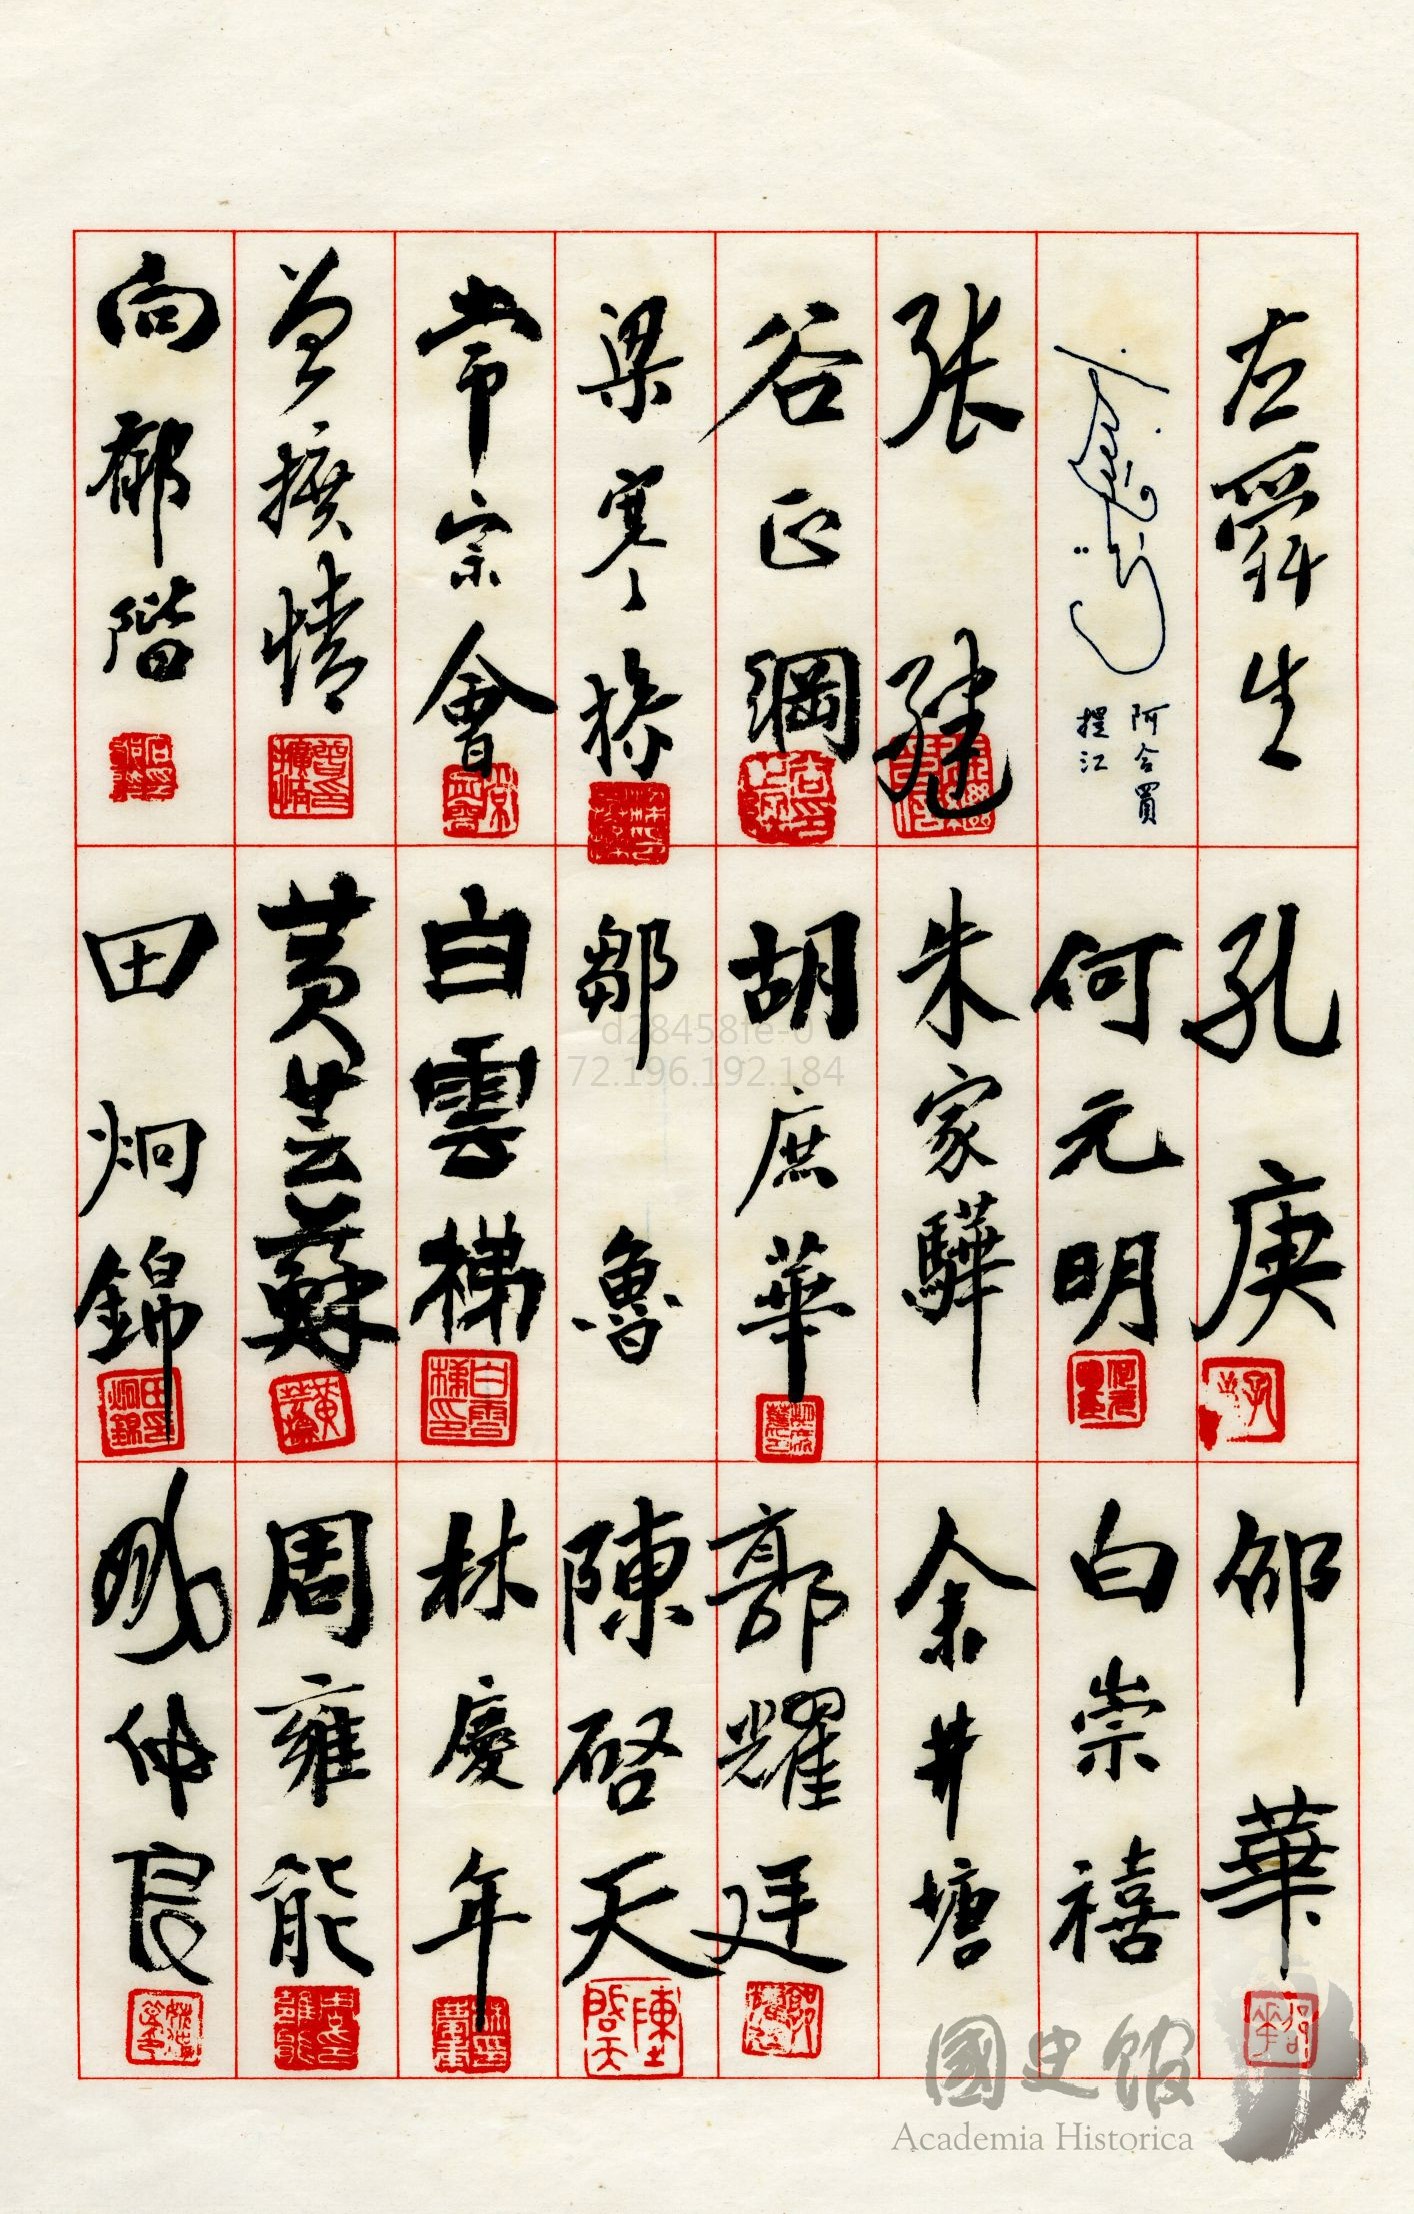 左舜生
孔庚
邵華
阿合買
提江
何元明
白崇禧
張繼
朱家驊
余井塘
谷正綱
胡庶華
郭耀廷
梁寒操
鄒魯
陳啓天
常宗會
白雲梯
林慶年
曾擴情
黃芸蘇
周雍能
向郁階
田炯錦
仲良
d28458fe-0
72.196.192.184
國史館
Academia Historica